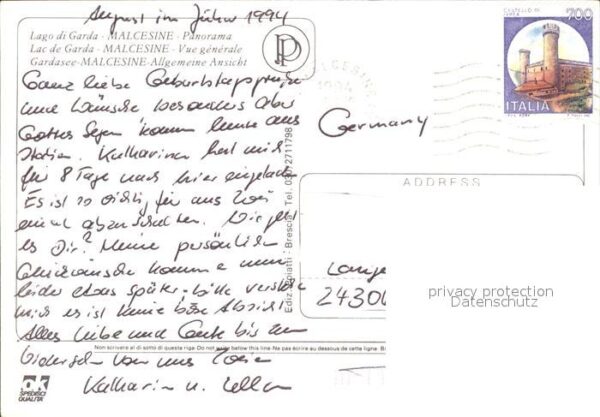 August im Jahre 1994
Lago di Garda - MALCESINE - Panorama
Lac de Garda - MALCESINE - Vue générale
Gardasee-MALCESINE-Allgemeine Ansicht
CASTELLO DI
IVREA
700
ITALIA
MALCESINE
Ganz liebe Geburtstagsgrüße
und Wünsche besonders aber
Gottes Segen kommen heute aus
Italien. Katharina hat mich
für 8 Tage nach hier eingeladen
Es ist so richtig für uns Zwei
einmal abzuschalten. Wie geht
es Dir? Meine persönlichen
Glückwünsche kommen nun
leider etwas später - bitte verstehe
mich es ist keine böse Absicht
Alles Liebe und Gute bis zum
Wiedersehn von uns Zweien
Katharina u.
Germany
ADDRESS
Lange
2430
privacy protection
Datenschutz
Brescia Tel. 030/2711798
Non scrivere al di sotto di questa riga Do not write below this line-Ne pas écrire au dessous de cette ligne
SPEDISCI
QUALITÀ